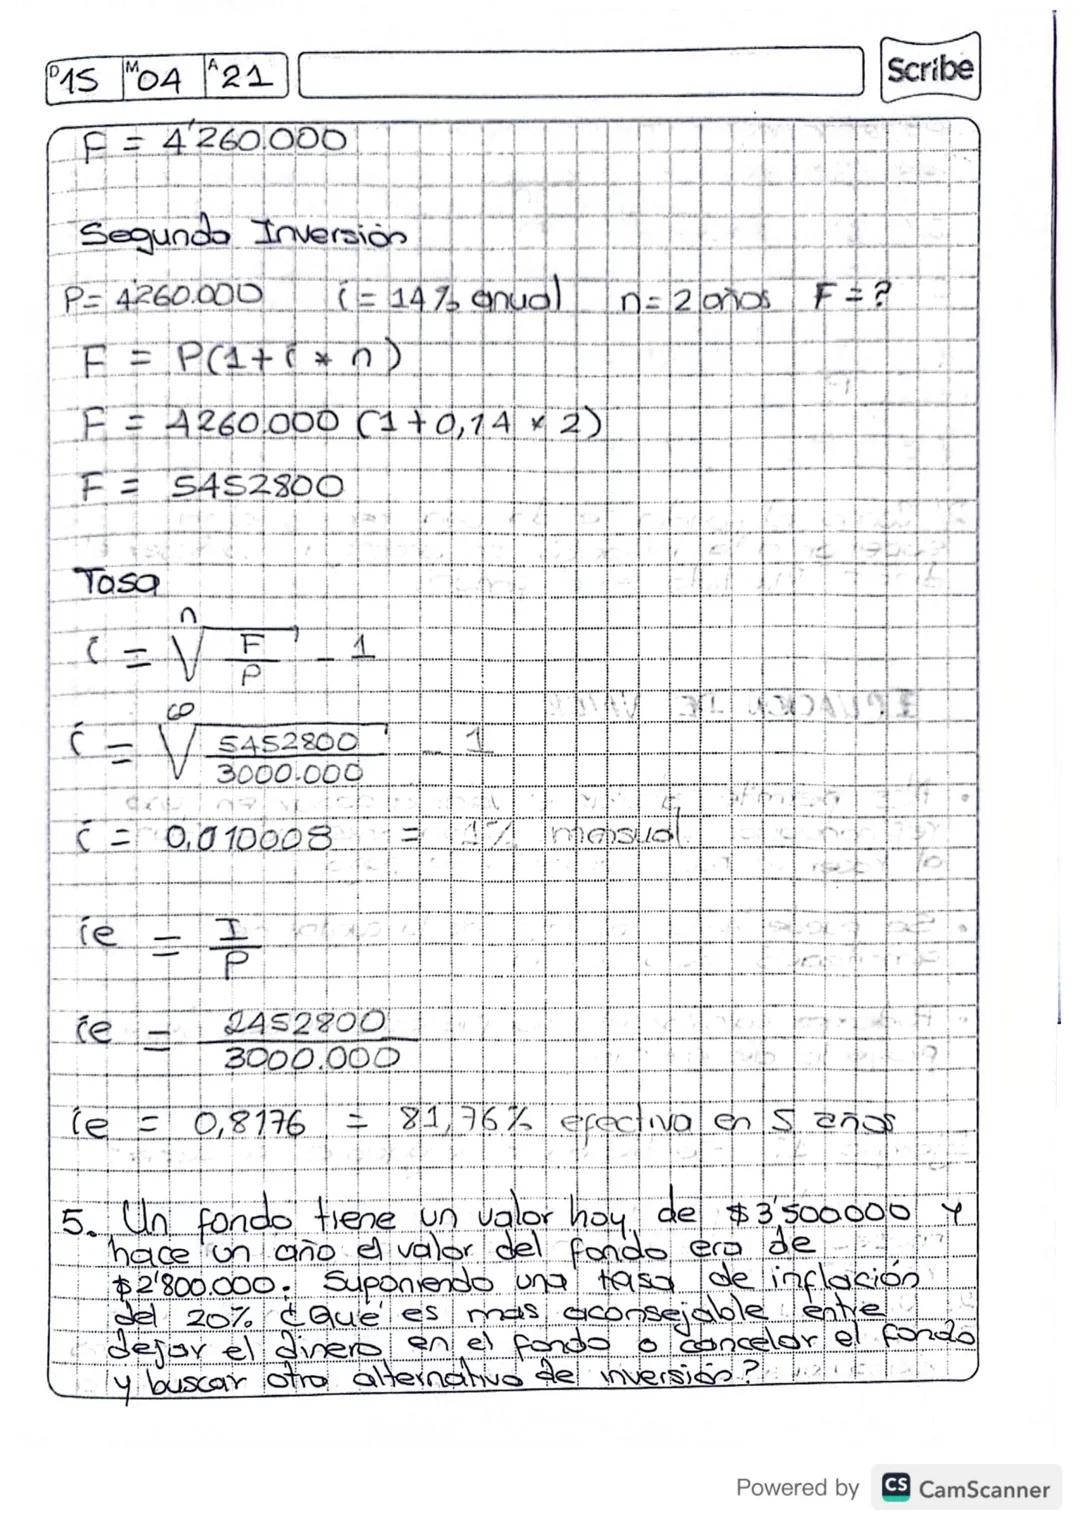 D 15 M 04 A 21
Scribe
F = 4'260.000
Segunda Inversión
P= 4'260.000 i = 14% anual n= 2 años F = ?
F = P(1+i * n)
F = 4260.000 (1+0,14 * 2)
F = 5452800
Tasa
i = ⁿ√(F/P) - 1
i = ⁶⁰√(5452800/3000.000) - 1
i = 0,010008 = 1% mensual
ie = I/P
ie = 2452800/3000.000
ie = 0,8176 = 81,76% efectiva en 5 años
5. Un fondo tiene un valor hoy de $3'500000 y
hace un año el valor del fondo era de
$2'800.000. Suponiendo una tasa de inflación
del 20% ¿Qué es mas aconsejable entre
dejar el dinero en el fondo o cancelar el fondo
y buscar otra alternativa de inversión?
Powered by CS CamScanner